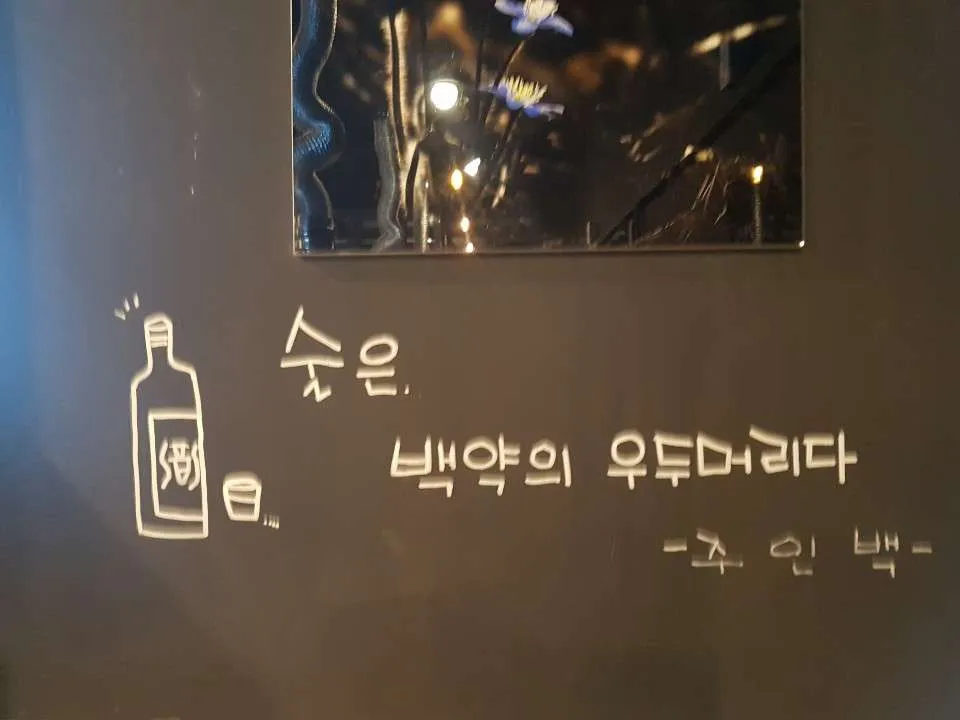 술은.
백약의 우두머리다
-주 인 백-
酒